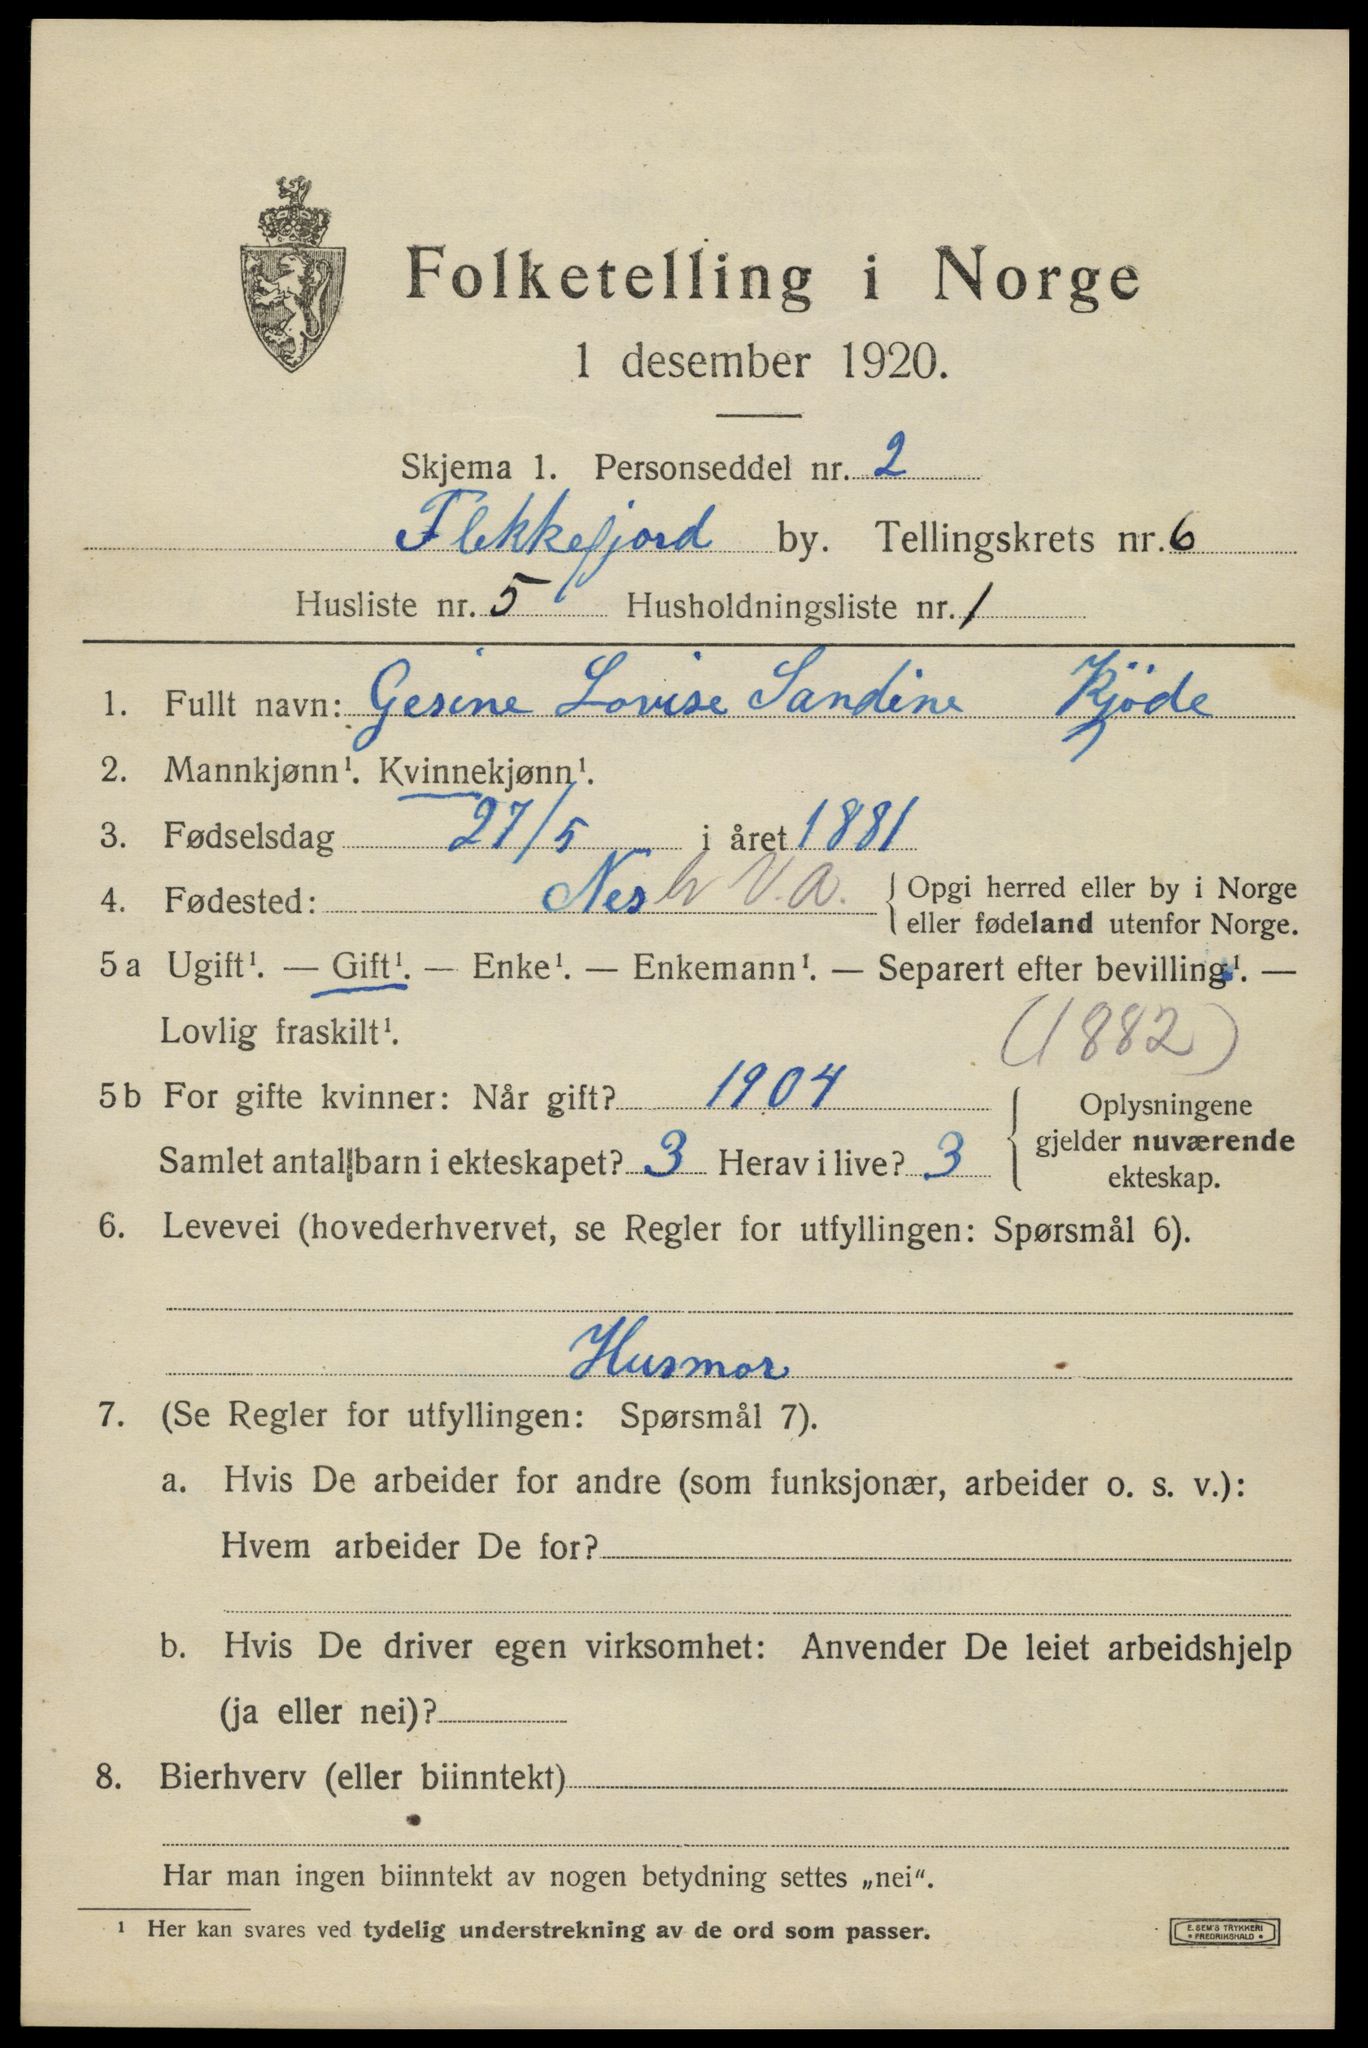 Folketelling i Norge
1 desember 1920.
Skjema 1. Personseddel nr. 2
Flekkefjord by. Tellingskrets nr. 6
Husliste nr. 5 Husholdningsliste nr. 1
1. Fullt navn: Gesine Lovise Sandine Kjöde
2. Mannkjønn¹. Kvinnekjønn¹.
3. Fødselsdag 27/5 i året 1881
4. Fødested: Nes h V.A. { Opgi herred eller by i Norge
eller fødeland utenfor Norge.
5 a Ugift¹. — Gift¹. — Enke¹. — Enkemann¹. — Separert efter bevilling¹. —
Lovlig fraskilt¹. (1882)
5 b For gifte kvinner: Når gift? 1904
Samlet antall barn i ekteskapet? 3 Herav i live? 3
Oplysningene
gjelder nuværende
ekteskap.
6. Levevei (hovederhvervet, se Regler for utfyllingen: Spørsmål 6).
Husmor
7. (Se Regler for utfyllingen: Spørsmål 7).
a. Hvis De arbeider for andre (som funksjonær, arbeider o. s. v.):
Hvem arbeider De for?
b. Hvis De driver egen virksomhet: Anvender De leiet arbeidshjelp
(ja eller nei)?
8. Bierhverv (eller biinntekt)
Har man ingen biinntekt av nogen betydning settes „nei“.
¹ Her kan svares ved tydelig understrekning av de ord som passer.
E. SEM'S TRYKKERI
• FREDRIKSHALD •